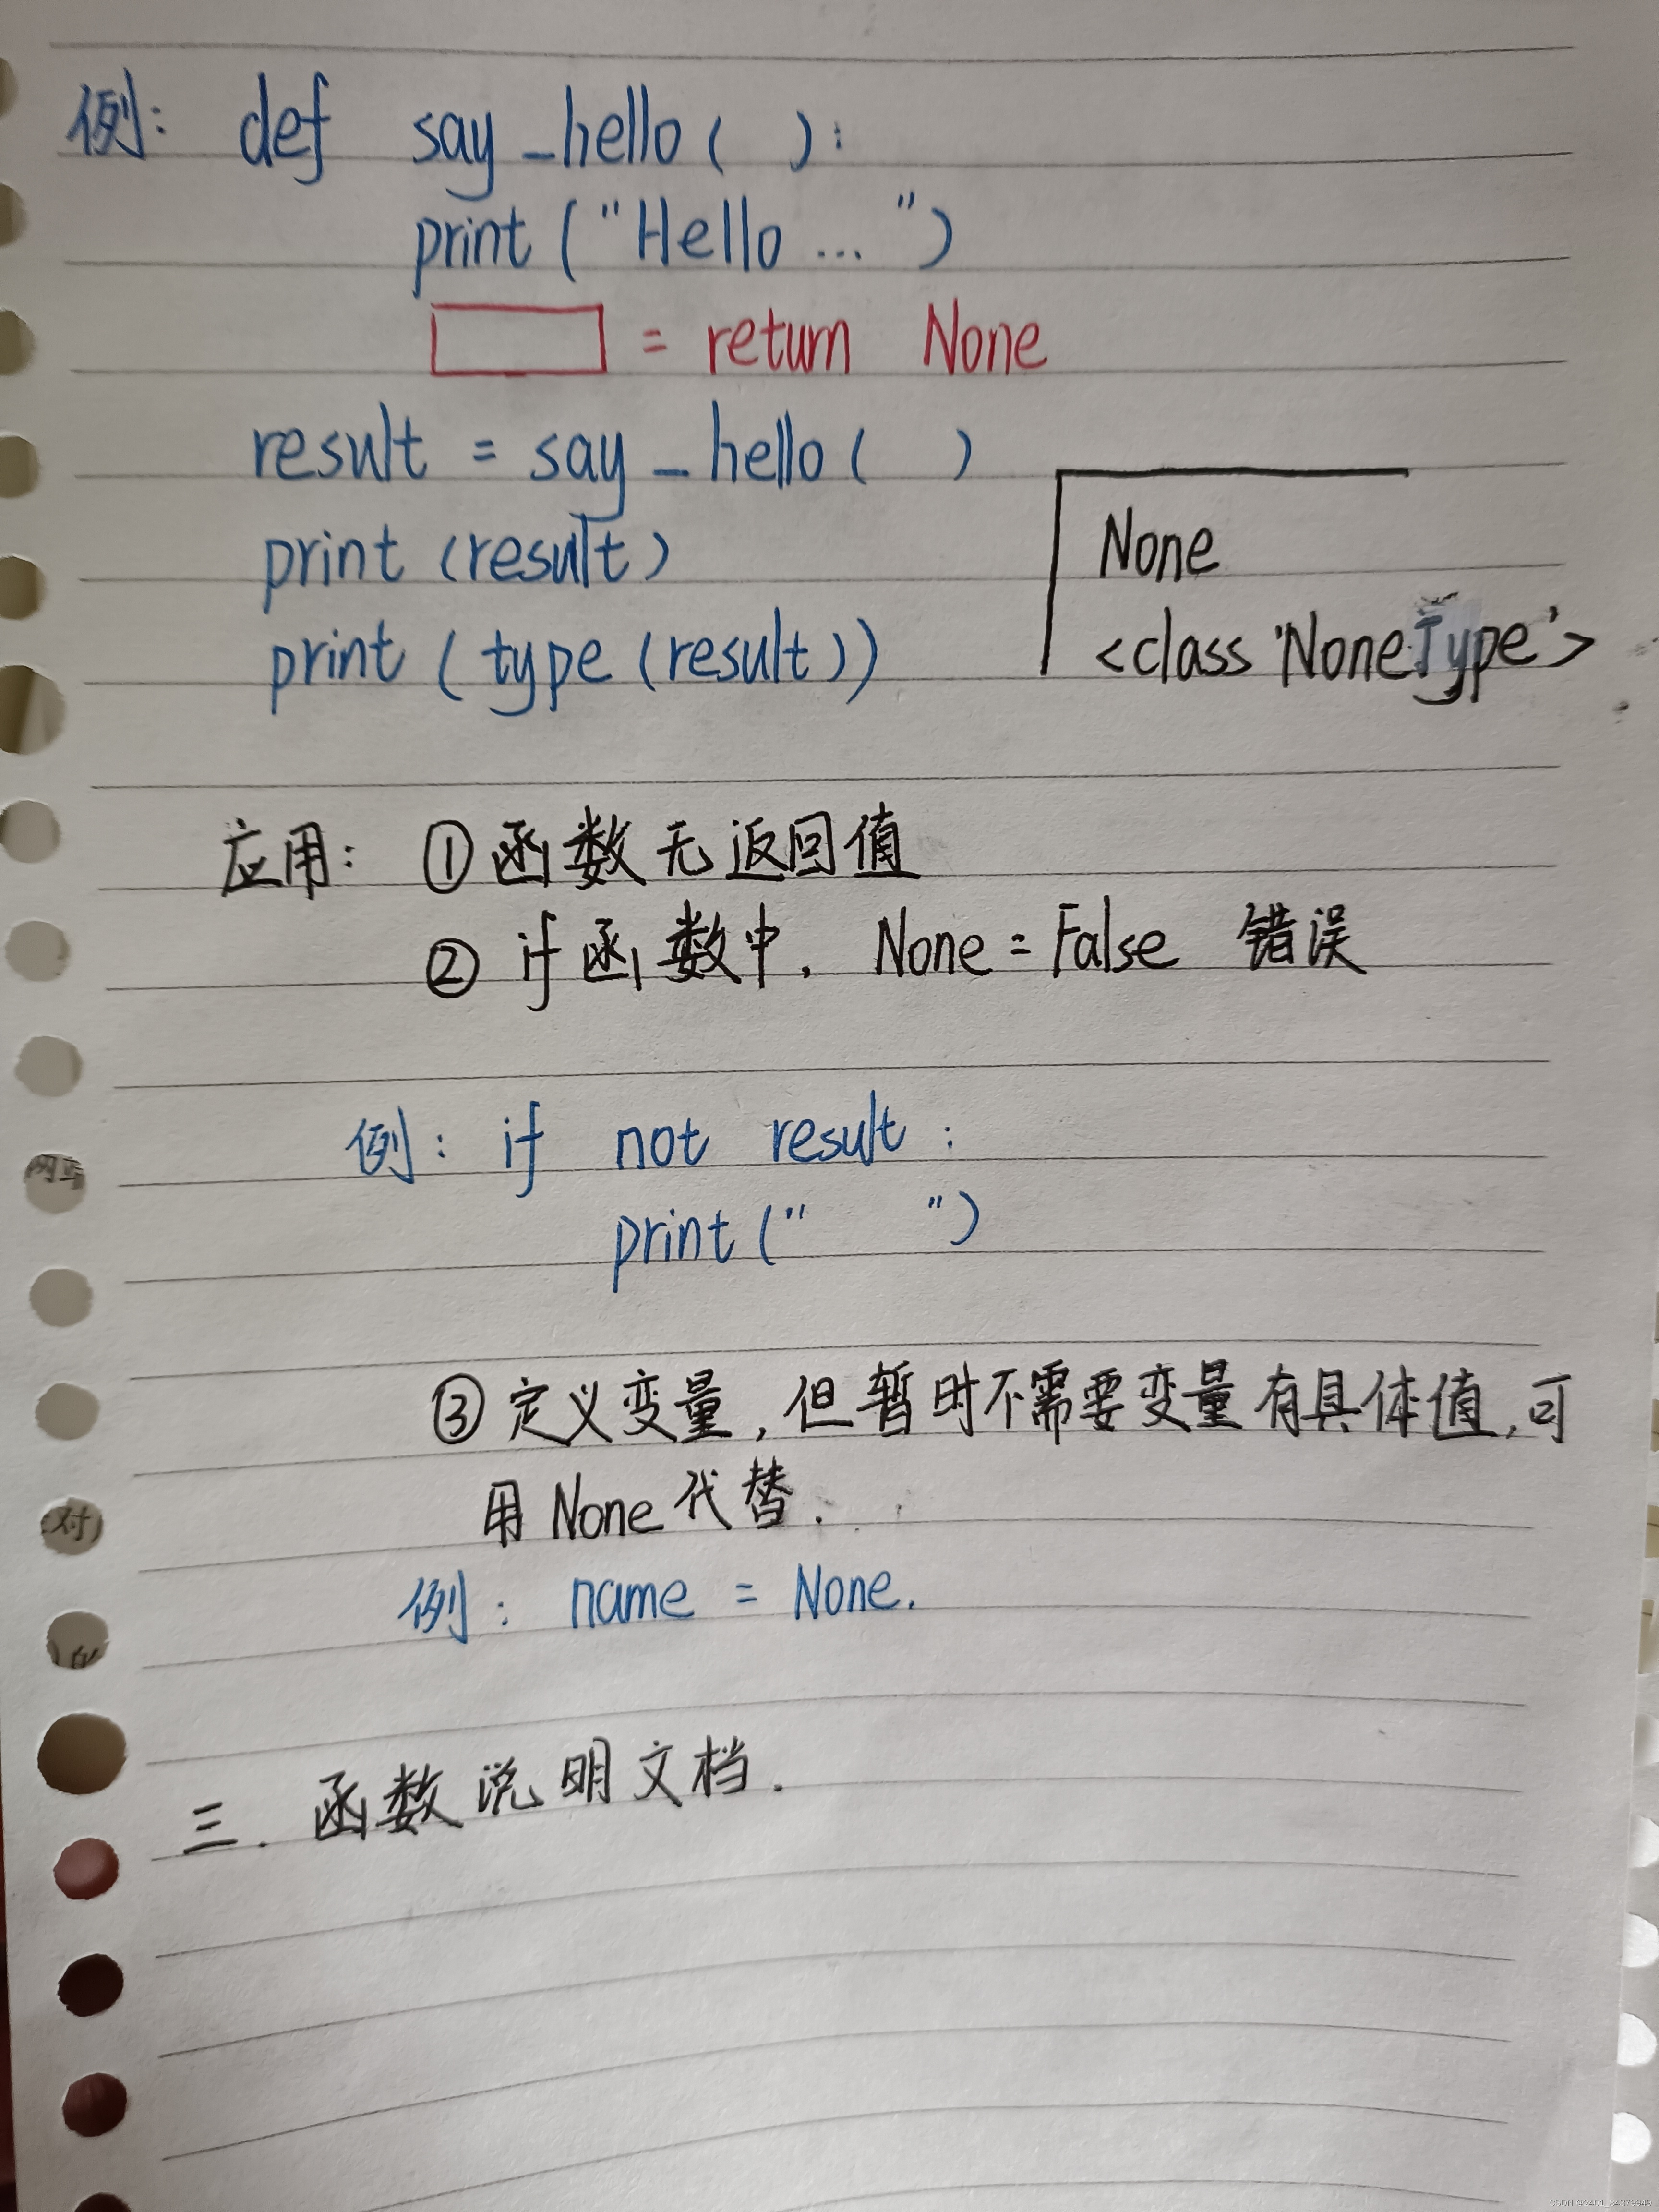 例: def say_hello( ):
print("Hello ... ")
= return None
result = say_hello( )
print(result)
print(type(result))
None
<class 'NoneType'>
应用: ①函数无返回值
② if函数中, None = False 错误
例: if not result :
print(" ")
③定义变量,但暂时不需要变量有具体值,可
用None代替.
例: name = None.
三. 函数说明文档.
对
CSDN @2401_84379949